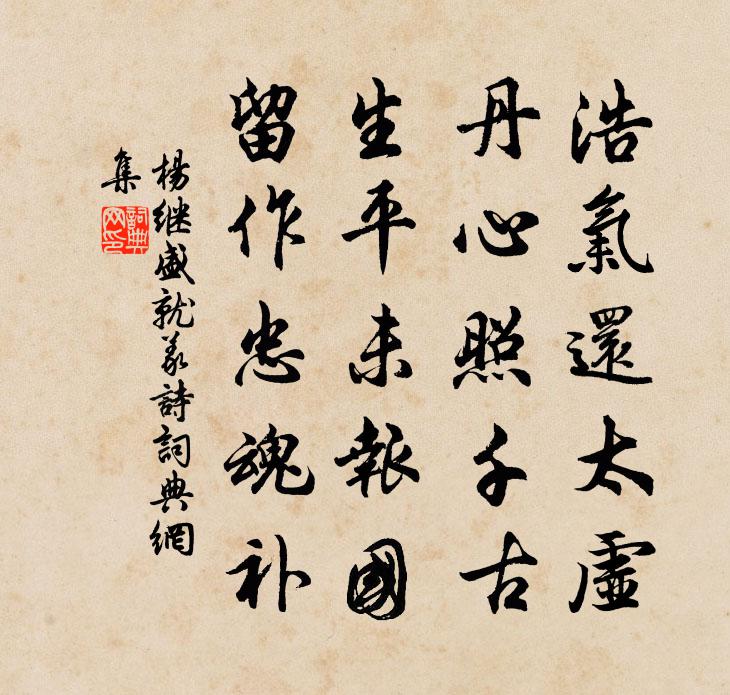 浩氣還太虛
丹心照千古
生平未報國
留作忠魂补
楊继盛就义詩詞典網
集
詞典网印